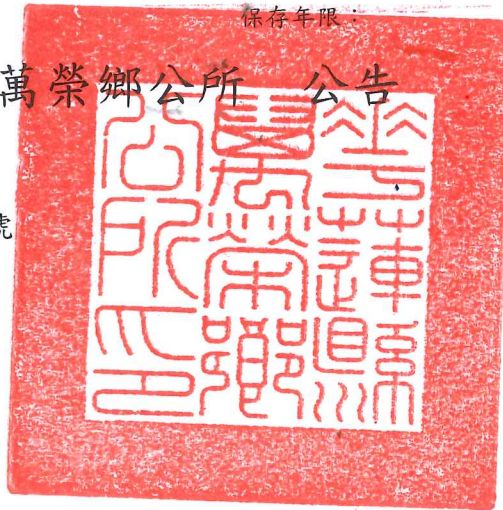 保存年限：
萬榮鄉公所　公告
號
花蓮縣
萬榮鄉
公所印